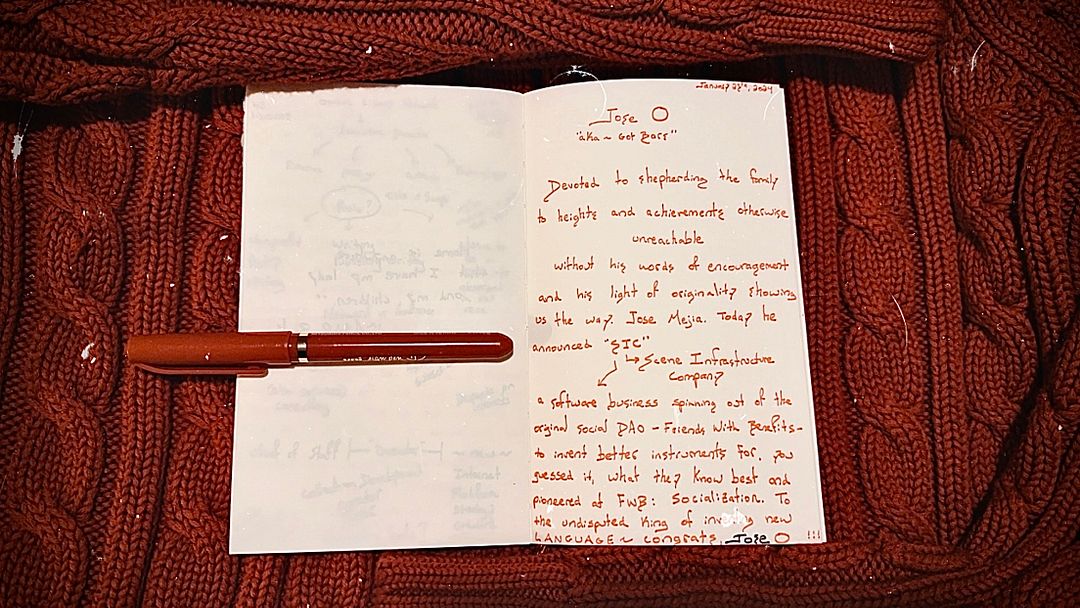 January 28th, 2024
Jose O
"aka ~ Got Bars"
Devoted to shepherding the family
to heights and achievements otherwise
unreachable
without his words of encouragement
and his light of originality showing
us the way. Jose Mejia. Today he
announced "SIC"
↳ Scene Infrastructure
Company
a software business spinning out of the
original social DAO - Friends With Benefits -
to invent better instruments for, you
guessed it, what they know best and
pioneered at FWB: Socialization. To
the undisputed King of new
LANGUAGE ~ congrats, Jose O !!!